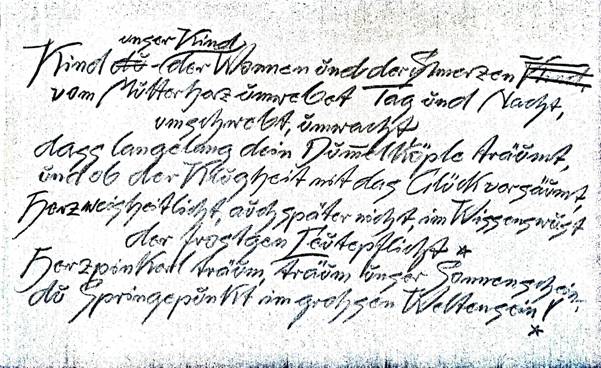 unser Kind
Kind du - der Wonnen und der Schmerzen Kind
vom Mutterherz umwebet Tag und Nacht,
umschwebt, umwacht
dass langelang dein Dummelköple träumt,
und ob der Klugheit nit das Glück versäumt
Herzweisheitlicht, auch später nicht, im Wissenswust
der frostgen Leutepflicht *
Herzpinkerl träum, träum unser Sonnenschein,
du Springepunkt im grohsen Weltensein!
*